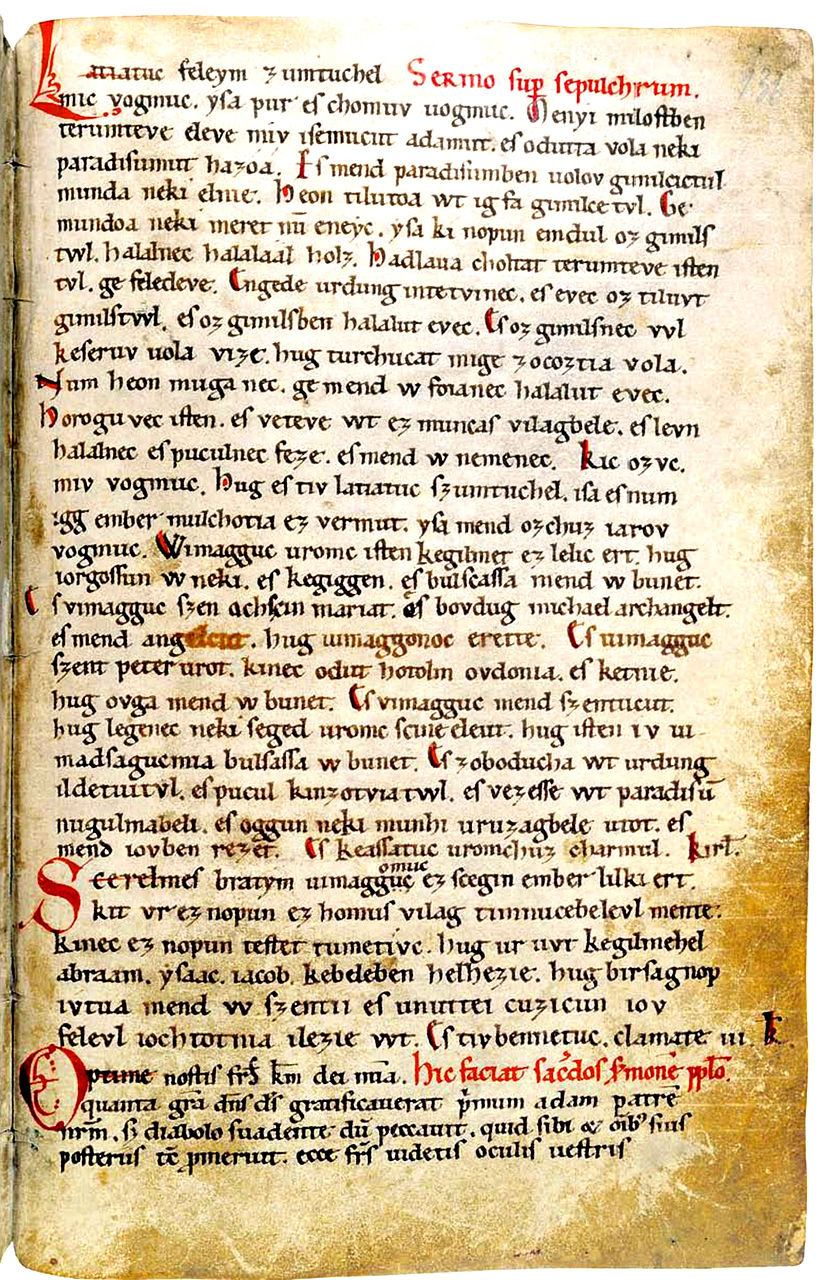 Latiatuc feleym zumtuchel Sermo sup sepulchrum.
mic vogmuc. ysa pur es chomuv uogmuc. Menyi milostben
terumteve eleve miv isemucut adamut. es odutta vola neki
paradisumut hazoa. Es mend paradisumben uolov gimilcictul
munda neki elnie. Heon tilutoa wt ig fa gimilce tvl. Ge
mundoa neki meret nū eneyc. ysa ki nopun emdul oz gimils
twl. halalnec halalaal holz. Hadlaua choltat terumteve isten
tvl. ge feledeve. Engede urdung intetvinec. es evec oz tiluvt
gimilstwl. es oz gimilsben halalut evec. Es oz gimilsnec vvl
keseruv uola vize. hug turchucat mige zocoztia vola.
Num heon muga nec. ge mend w foianec halalut evec.
Horogu vec isten. es veteve wt ez muncas vilagbele. es levn
halalnec es puculnec feze. es mend w nemenec. Kic ozvc.
miv vogmuc. Hug es tiv latiatuc szumtuchel. isa es num
igg ember mulchotia ez vermut. ysa mend ozchuz iarov
vogmuc. Wimagguc uromc isten kegilmet ez lelic ert. hug
iorgossun w neki. es kegiggen. es bulscassa mend w bunet.
Es vimagguc szen achscin mariat. es bovdug michael archangelt.
es mend angelcut. hug uimaggonoc erette. Es uimagguc
szent peter urot. kinec odut hotolm ovdonia. es ketnie.
hug ovga mend w bunet. Es vimagguc mend szentucut.
hug legenec neki seged uromc scine eleut. hug isten iv ui
madsagucmia bulsassa w bunet. Es zoboducha wt urdung
ildetuitvl. es pucul kinzotviatwl. es vezesse wt paradisū
nugulmabeli. es oggun neki munhi uruzagbele utot. es
mend iovben rezet. Es keassatuc uromchuz charmul. kirł.
omuc
Scerelmes bratym uimagguc ez scegin ember lilki ert.
kit vr ez nopun ez homus vilag timnucebelevl mente.
kinec ez nopun testet tumetivc. hug ur uvt kegilmehel
abraam. ysaac. iacob. kebeleben helhezie. hug birsagnop
ivtua mend w szentii es unuttei cuzicun iov
felevl iochtotnia ilezie wt. Es tivbennetuc. clamate iii. k.
Optime nostis frs̄ km̄ dei mīa. Hic faciat sac̄dos s̄monē pplo
quanta grā dn̄s ds̄ gratificauerat p̄mum adam patrē
nrm̄. s̄ diabolo suadente dū peccauit. quid sibi & oīb' suis
posteris tē p̄meruit. ecce frs̄ uidetis oculis uestris